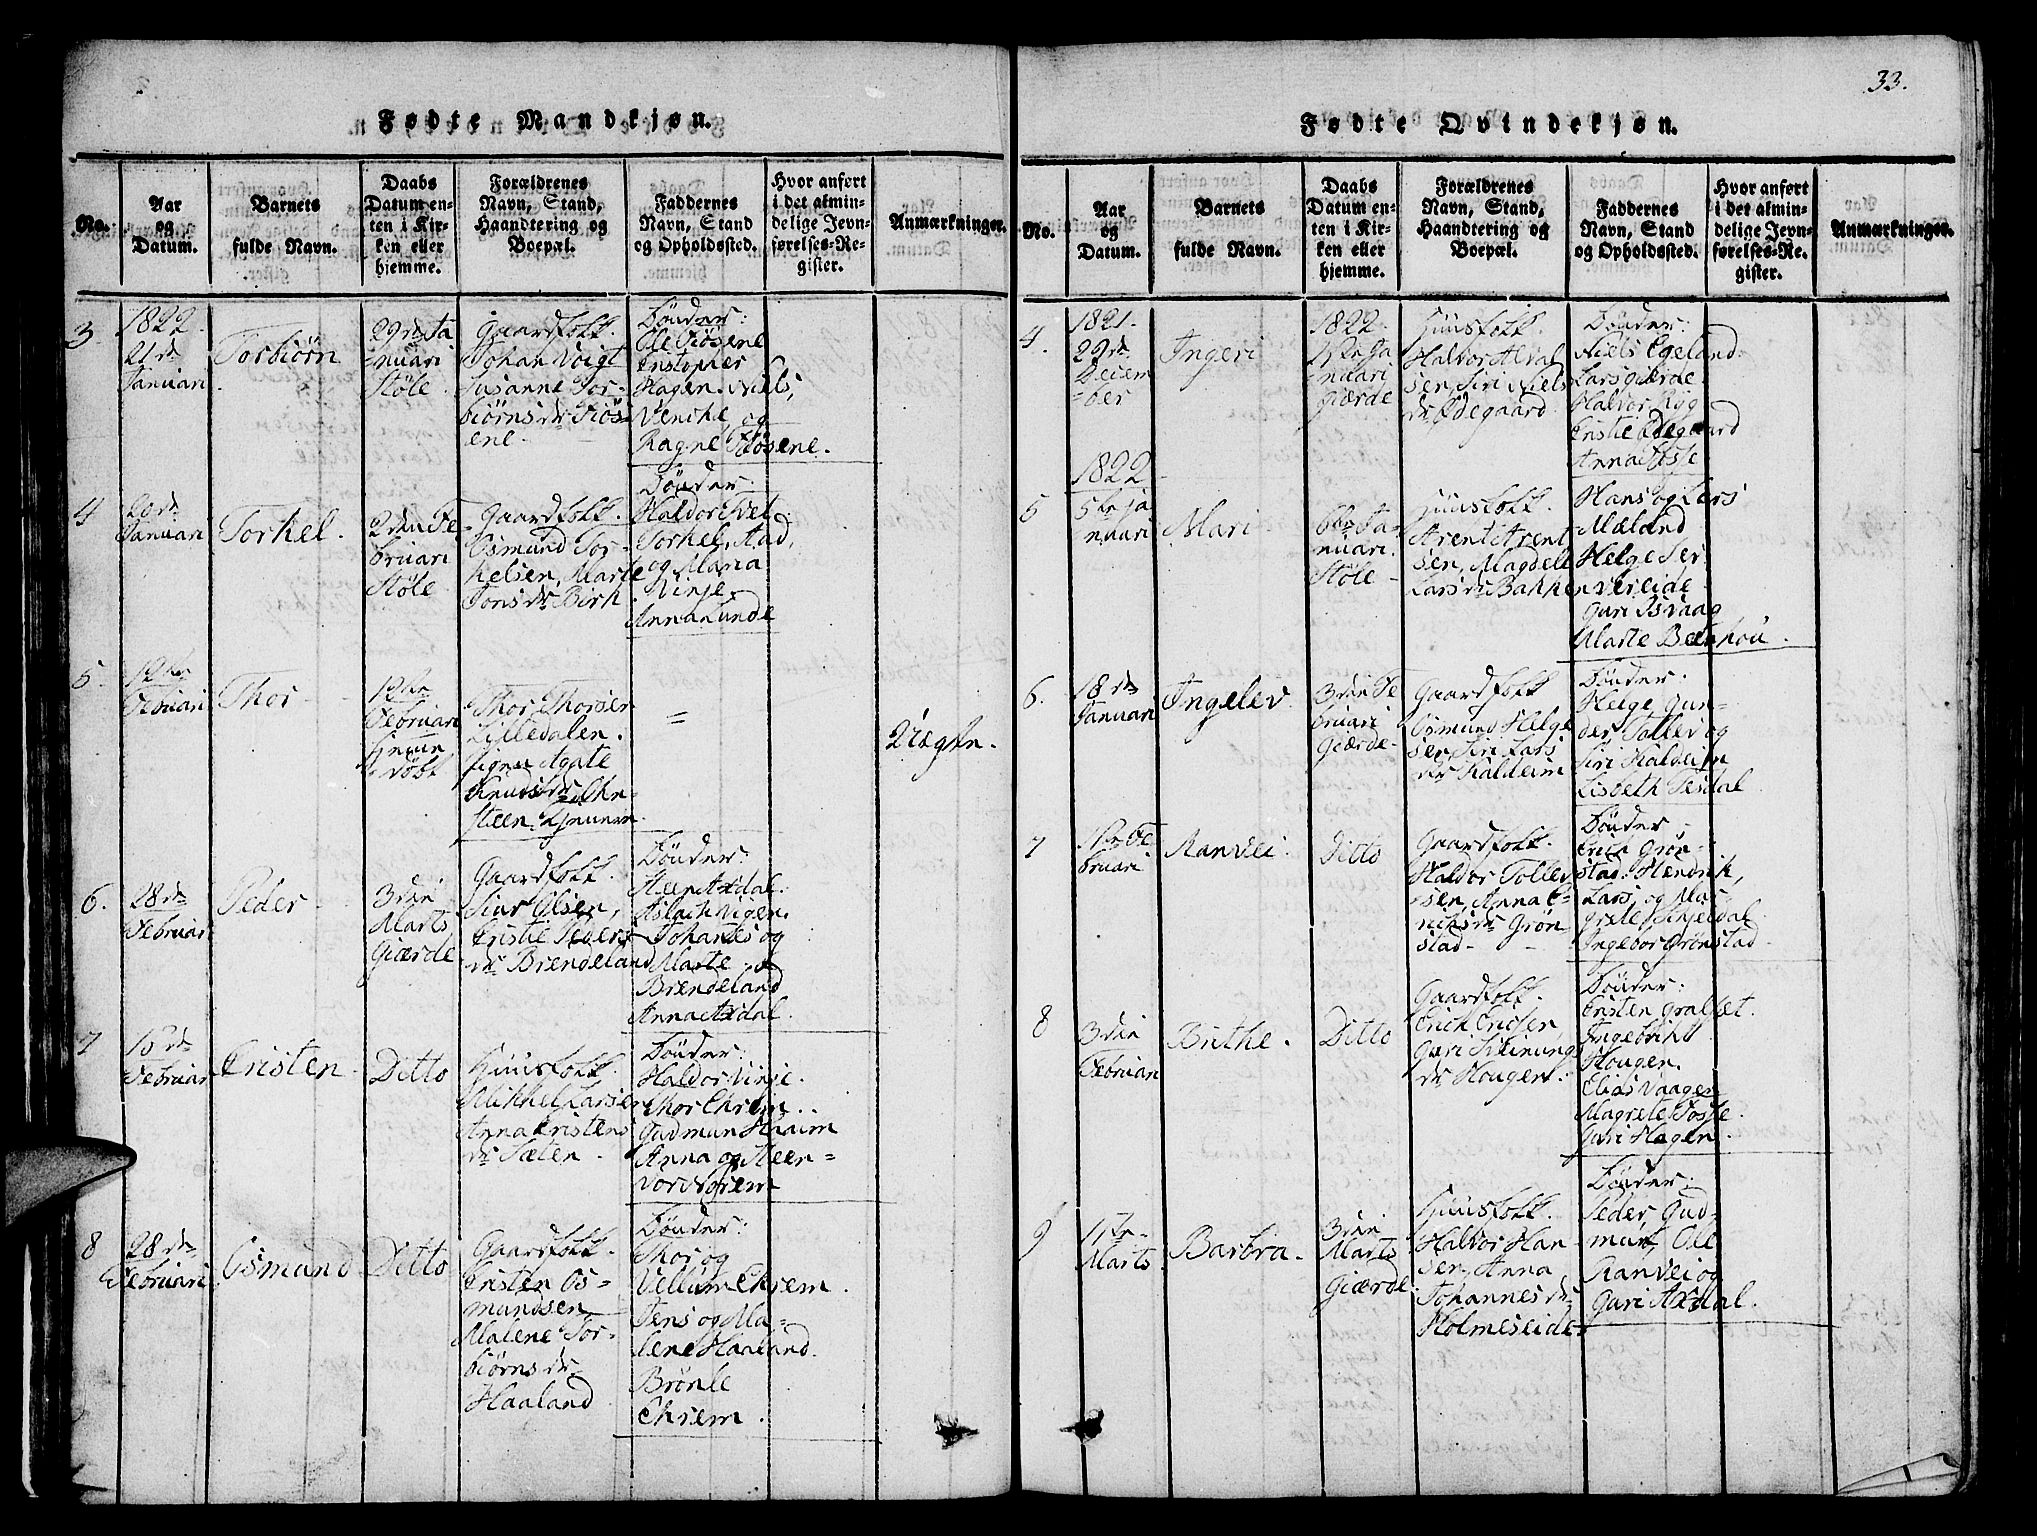 33.
Fødte Mandkjøn.
No.
Aar og Datum.
Barnets fulde Navn.
Daabs Datum enten i Kirken eller hjemme.
Forældrenes Navn, Stand, Haandtering og Boepæl.
Faddernes Navn, Stand og Opholdssted.
Hvor anført i det almindelige Jevnførelses-Register.
Anmærkninger.
3
1822.
21de
Januari
Torbiørn
29de Ja
nuari
Støle
Gaardfolk.
Johan Voigt
Susanne Tor-
biørnsdr Fiøs-
ene.
Bönder:
Ole Fiøsene
Cristopher
Hagen. Niels,
Venche og
Ragne Fiøsene.
4
20de
Januari
Torkel.
2den Fe
bruari
Støle
Gaardfolk.
Osmund Tor-
kelsen, Marte
Jonsdr Birk.
Bönder:
Haldor Tvet
Torkel Aad,
og Maria
Vinje.
Anna Lunde
5.
12te
Februari
Thor
12te
Februari
hjemme
døbt
Thor Thorsen
Lilledalen.
Pigen Agate
Knudsdr
steen.
=
6.
28de
Februari
Peder
3die
Marts
Giærde
Gaardfolk.
Siur Olsen,
Cristie Peders
dr Brendeland
Bönder:
Steen Axdal.
Aslach Vigen.
Johannes og
Marte
Brendeland
Anna Axdal.
7
Februari
Cristen.
Ditto
Huusfolk.
Mikkel Larsen
Anna Cristens
dr Sæten.
Bönder:
Haldor Vinje.
Thor Chrem.
Gudmun Haaim
Anna og Steen-
vor
8
28de
Februari
Osmund
Ditto
Gaardfolk.
Cristen Os-
mundsen
Malene Tor-
biørnsdr
Haaland
Bönder:
Thor og
Vellum Chrem.
Jens og Ma-
lene Haaland.
Brönle
Chrem.
Fødte Qvindekjøn.
No.
Aar og Datum.
Barnets fulde Navn.
Daabs Datum enten i Kirken eller hjemme.
Forældrenes Navn, Stand, Haandtering og Boepæl.
Faddernes Navn, Stand og Opholdssted.
Hvor anført i det almindelige Jevnførelses-Register.
Anmærkninger.
4.
1821.
29de
Decem
=ber
Ingeri
1822.
Ja
nuari
Giærde
Huusfolk.
Halvor Alval
sen, Siri Niels
dr Ødegaard.
Bönder:
Niels Egeland.
Lars giærde.
Halvor Ryg
Cristie Ødegaard
Anna Fosse
5
1822
5te Ja
nuari
Mari
6te Ja-
nuari.
Støle
Huusfolk.
Arent Arent
sen, Magdele
Larsdr Bakken
Hans og Lars
Mæland
Helge Ser
vereide
Guri Isvaag
Marte Bænhou.
6.
18de
Januari
Ingelev
3die Fe
bruari
Giærde
Gaardfolk
Osmund Helge
sen, Siri Lars
dr Kaldeim
Bönder.
Helge, Gun-
der, Tollev og
Siri Kaldeim
Lisbeth Tesdal.
7
1ste Fe
bruari
Ranvei.
Ditto
Gaardfolk.
Haldor Tollev
sen, Anna E-
richsdr Grøn-
stad
Bönder
Erich Grøn-
stad. Hendrik,
Lars, og Mar-
grete Tinjeldal.
Ingebor Grønstad
8
3die
Februari
Birthe.
Ditto
Gaardfolk.
Erich Ericsen,
Guri Steinungs
dr Hougen.
Bönder:
Cristen gralset.
Ingebricht
Hougen.
Elias Vaagen.
Magrete Fosse.
Guri Hagen.
9
Marts.
Barbra.
3die
Marts
Giærde.
Huusfolk.
Halvor Han-
sen, Anna
Johannesdr
Holmeseide
Bönder:
Peder, Gud-
mun, Ole
Ranvei og
Guri Axdal.